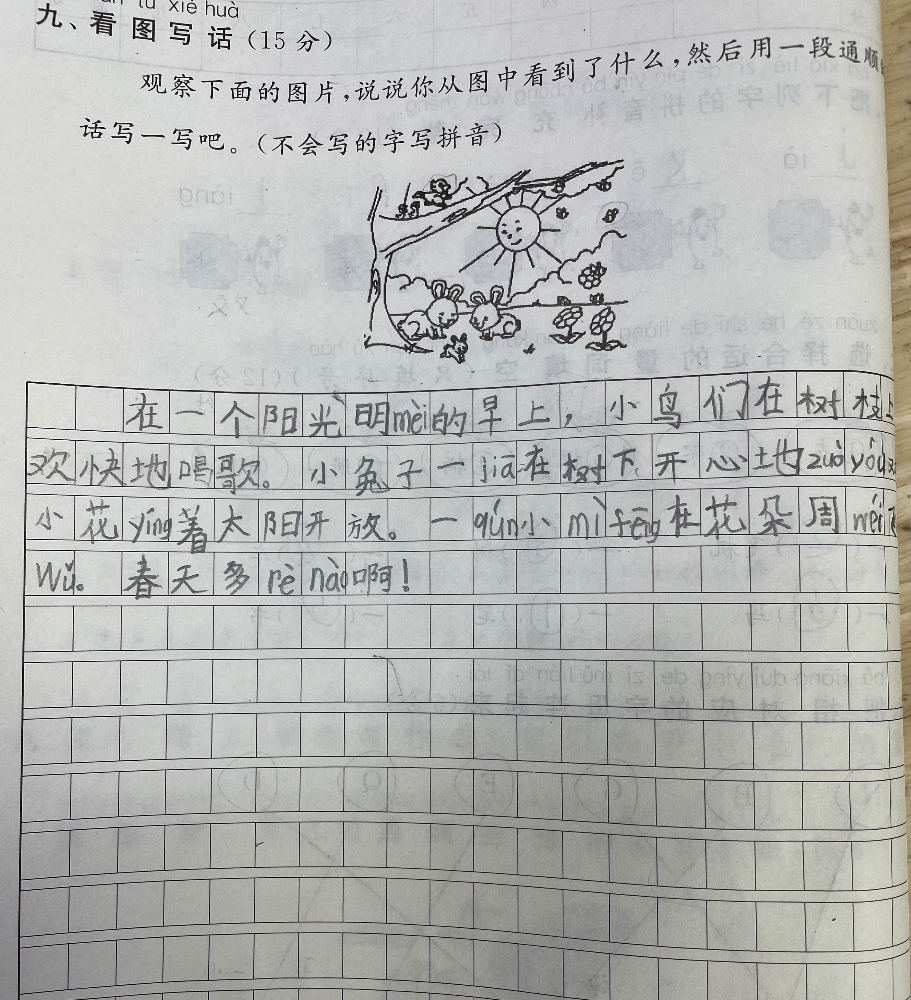 xiě huà
九、看图写话(15分)
观察下面的图片,说说你从图中看到了什么,然后用一段通顺
话写一写吧。(不会写的字写拼音)
在一个阳光明mèi的早上,小鸟们在树枝上
欢快地唱歌。小兔子一jiā在树下开心地zuò yóu
小花yíng着太阳开放。一qún小mì fēng在花朵周wéi
wǔ。春天多rè nào啊!